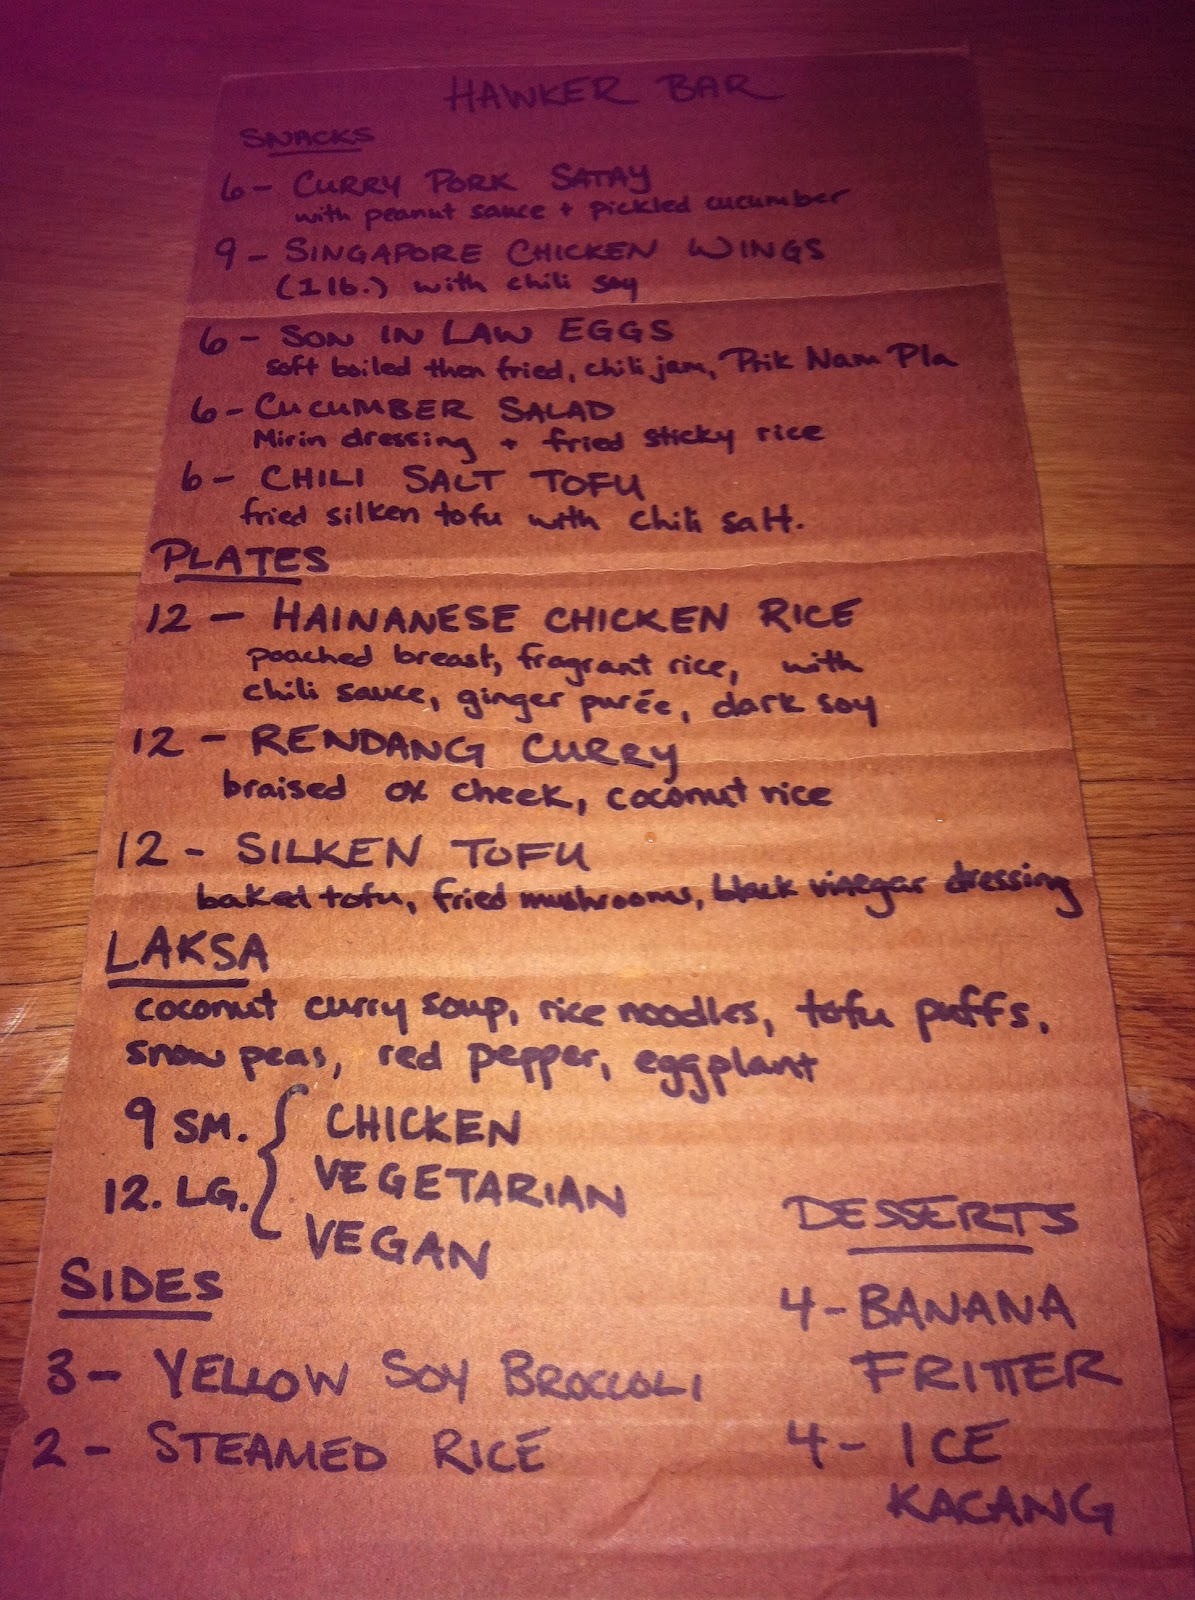 HAWKER BAR
SNACKS
6 - CURRY PORK SATAY
with peanut sauce + pickled cucumber
9 - SINGAPORE CHICKEN WINGS
(1 lb.) with chili soy
6 - SON IN LAW EGGS
soft boiled then fried, chili jam, Prik Nam Pla
6 - CUCUMBER SALAD
Mirin dressing + fried sticky rice
6 - CHILI SALT TOFU
fried silken tofu with chili salt.
PLATES
12 - HAINANESE CHICKEN RICE
poached breast, fragrant rice, with
chili sauce, ginger purée, dark soy
12 - RENDANG CURRY
braised ox cheek, coconut rice
12 - SILKEN TOFU
baked tofu, fried mushrooms, black vinegar dressing
LAKSA
coconut curry soup, rice noodles, tofu puffs,
snow peas, red pepper, eggplant
9 SM. { CHICKEN
12. LG. VEGETARIAN
VEGAN
SIDES
3 - YELLOW SOY BROCCOLI
2 - STEAMED RICE
DESSERTS
4 - BANANA
FRITTER
4 - ICE
KACANG